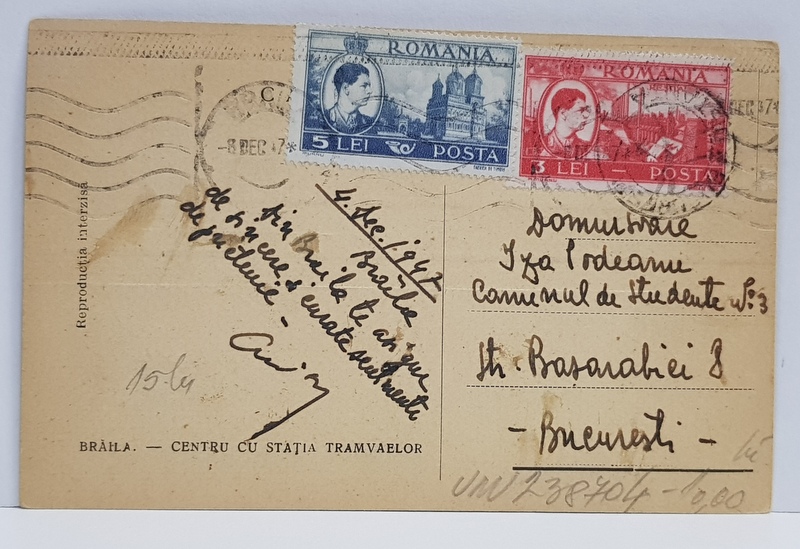 ROMANIA
5 LEI POSTA
ROMANIA
3 LEI — POSTA
-8 DEC 47*
DEC 47*
Reproducția interzisă
4. Dec. 1947
Brăila
din Brăila te asigur
de sincere și curate sentimente
de prietenie –
15 lei
BRĂILA. — CENTRU CU STAȚIA TRAMVAELOR
Domnișoare
Iza Podeanu
Caminul de Studente No. 3
Str. Basarabiei 8
– București –
238704 – 10,00